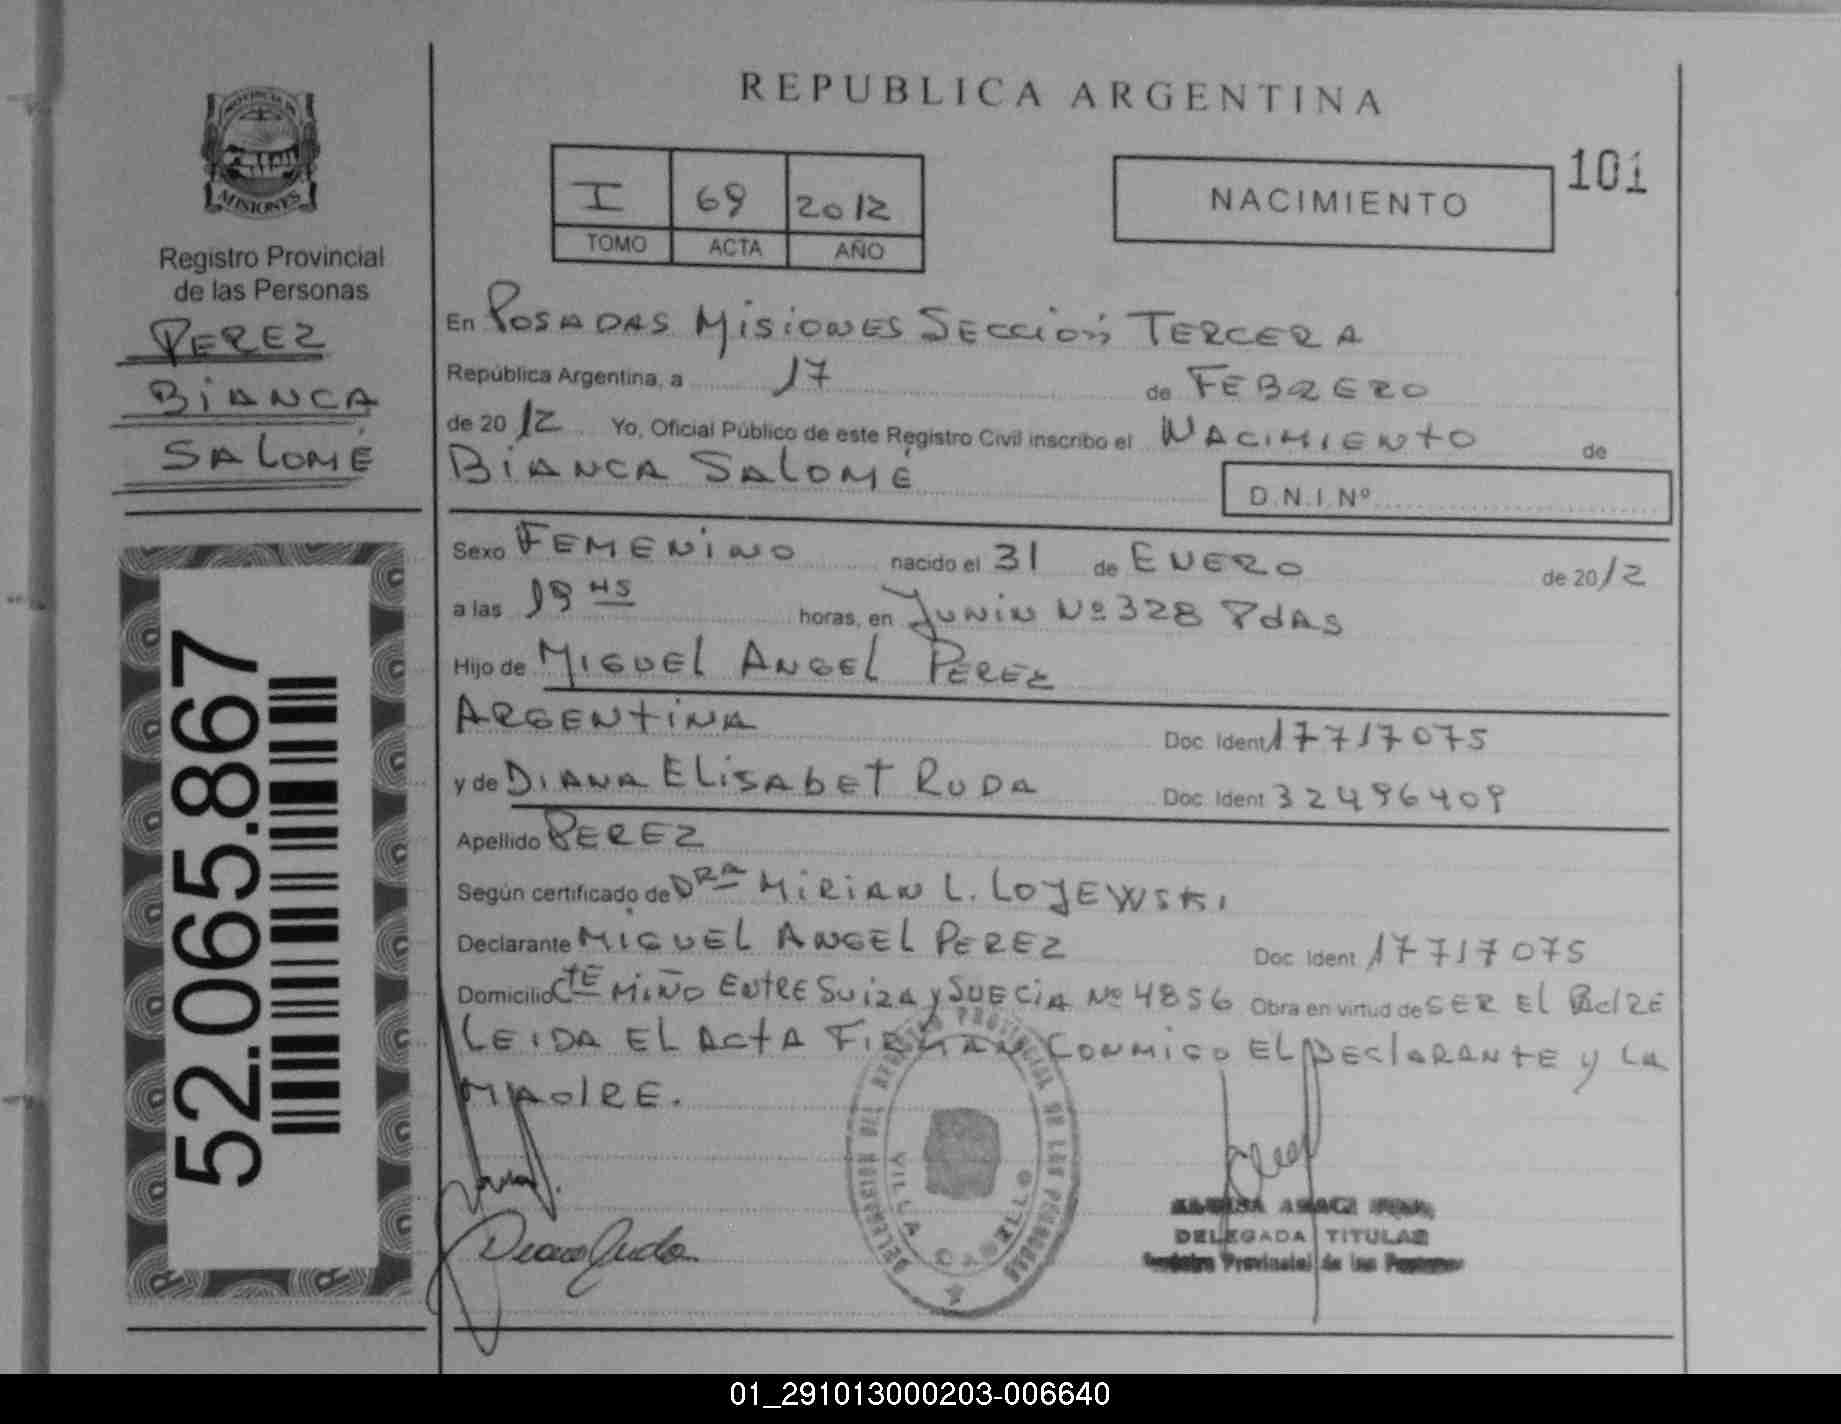 REPUBLICA ARGENTINA
PROVINCIA DE
MISIONES
Registro Provincial
de las Personas
PEREZ
BIANCA
SALOMÉ
52.065.867
I 69 2012
TOMO ACTA AÑO
NACIMIENTO
101
En POSADAS MISIONES SECCIÓN TERCERA
República Argentina, a 17 de FEBRERO
de 2012 Yo, Oficial Público de este Registro Civil inscribo el NACIMIENTO de
BIANCA SALOMÉ
D.N.I.Nº
Sexo FEMENINO nacido el 31 de ENERO de 2012
a las 19 HS horas, en JUNIN Nº 328 PdAS
Hijo de MIGUEL ANGEL PEREZ
ARGENTINA Doc. Ident 17717075
y de DIANA ELISABET RUDA Doc. Ident 32496409
Apellido PEREZ
Según certificado de DRA MIRIAN L. LOJEWSKI
Declarante MIGUEL ANGEL PEREZ Doc. Ident 17717075
Domicilio CTE MIÑO ENTRE SUIZA y SUECIA Nº 4856 Obra en virtud de SER EL PAdRE
LEIDA EL ACTA FIRMAN CONMIGO EL DEClARANTE y LA
MADRE.
DELEGACION DEL REGISTRO PROVINCIAL DE LAS PERSONAS
VILLA
Diana Ruda
DELEGADA TITULAR
Registro Provincial de las Personas
01_291013000203-006640